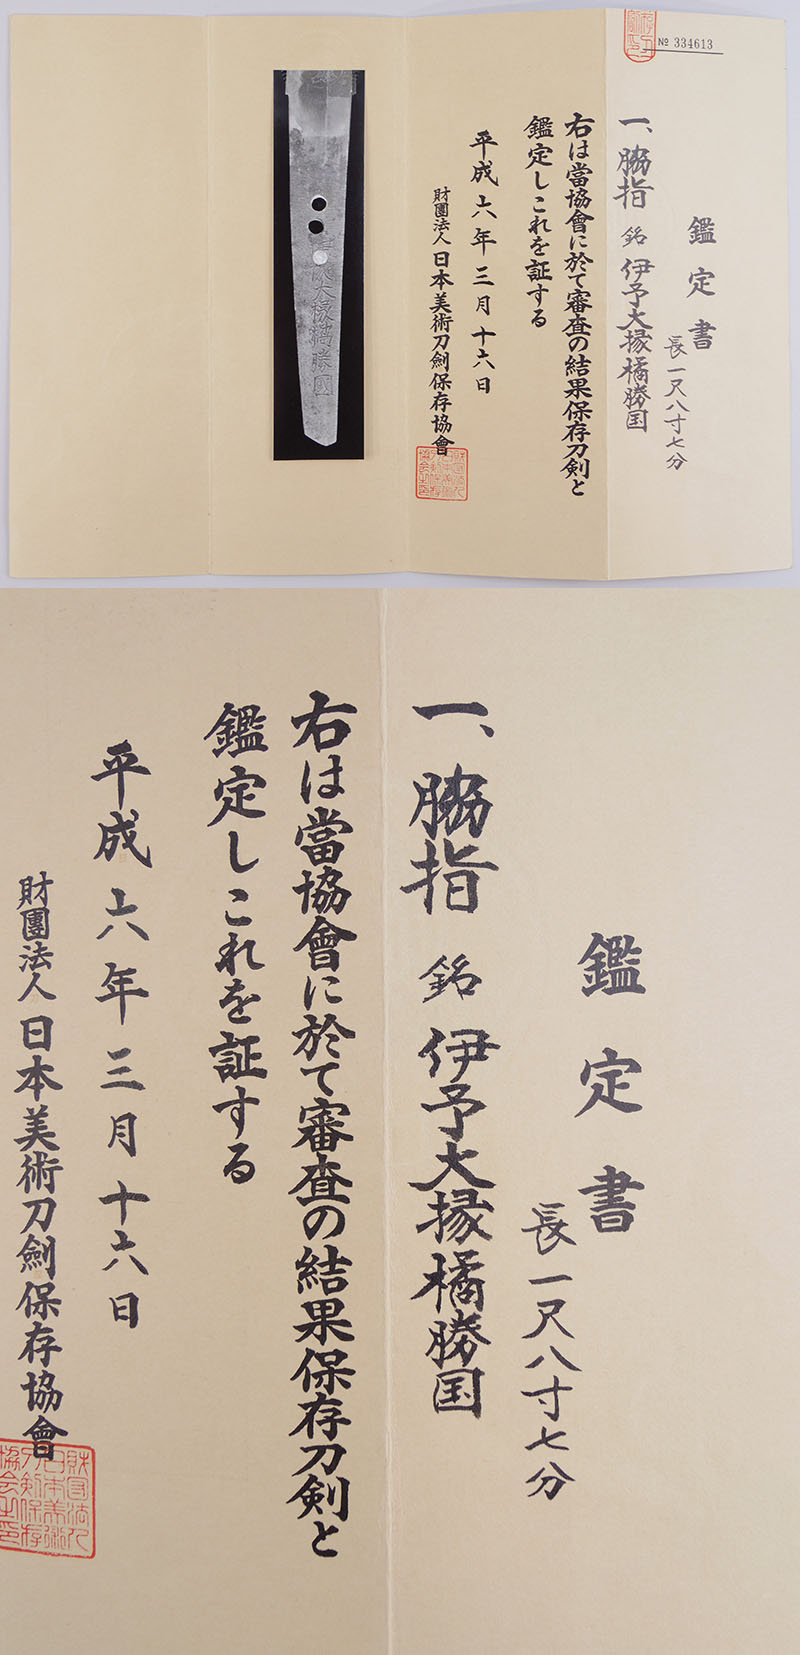 № 334613
鑑定書
長一尺八寸七分
一、脇指 銘 伊予大掾橘勝国
右は當協會に於て審査の結果保存刀剣と
鑑定しこれを証する
平成六年三月十六日
財團法人日本美術刀劍保存協會
大掾橘勝國
鑑定書
長一尺八寸七分
一、脇指 銘 伊予大掾橘勝国
右は當協會に於て審査の結果保存刀剣と
鑑定しこれを証する
平成六年三月十六日
財團法人日本美術刀劍保存協會